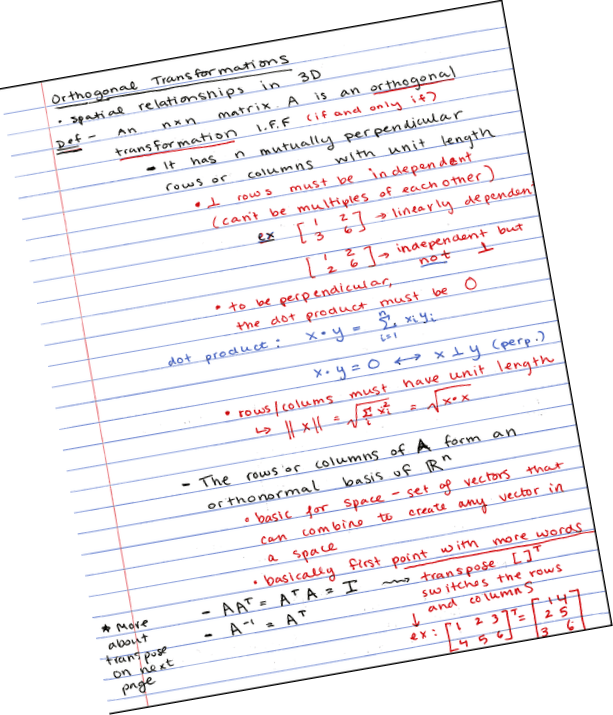 Orthogonal Transformations
• spatial relationships in 3D
Def - An nxn matrix A is an orthogonal
transformation I.F.F (if and only if)
- It has n mutually perpendicular
rows or columns with unit length
• ⊥ rows must be independent
(can't be multiples of each other)
ex [1 2
3 6] → linearly dependent
[1 2
2 6] → independent but
not ⊥
• to be perpendicular,
the dot product must be 0
dot product: x • y = Σ_{i=1}^{n} x_i y_i
x • y = 0 ↔ x ⊥ y (perp.)
• rows/colums must have unit length
↳ ||x|| = √(Σ_i x_i^2) = √(x•x)
- The rows or columns of A form an
orthonormal basis of ℝ^n
• basic for space - set of vectors that
can combine to create any vector in
a space
• basically first point with more words
- AA^T = A^T A = I ⇝ transpose [ ]^T
switches the rows
and columns
- A^{-1} = A^T
ex: [1 2 3
4 5 6]^T = [1 4
2 5
3 6]
* More
about
transpose
on next
page